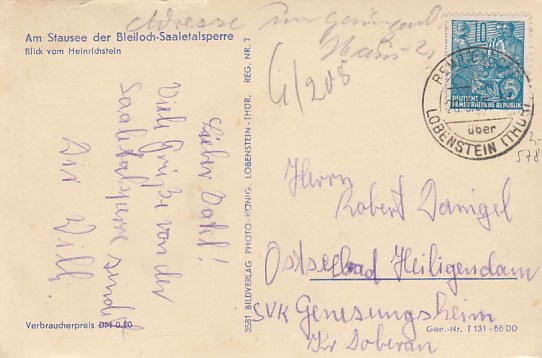 Adresse
Am Stausee der Bleiloch-Saaletalsperre
Blick vom Heinrichstein
G/208
DEUTSCHE
DEMOKRATISCHE REPUBLIK
über
LOBENSTEIN (THÜR)
2,-
578
Lieber Vater!
Viele Grüße von der
Saaletalsperre sendet
Dir Willi
REG. NR. 7
3581 BILDVERLAG PHOTO-KÖNIG, LOBENSTEIN-THÜR.
Herrn
Robert Danigel
Ostseebad Heiligendamm
SVK Genesungsheim
Kr Doberan
Verbraucherpreis DM 0.20
Gen.-Nr. T 131 - 56 DD